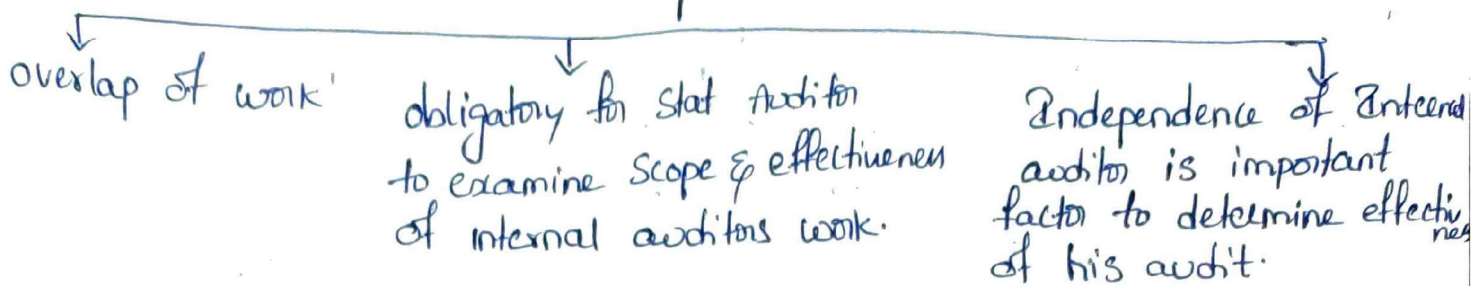 overlap of work
obligatory for Stat Auditor
to examine scope & effectiveness
of internal auditors work.
Independence of Internal
auditor is important
factor to determine effective
ness
of his audit.